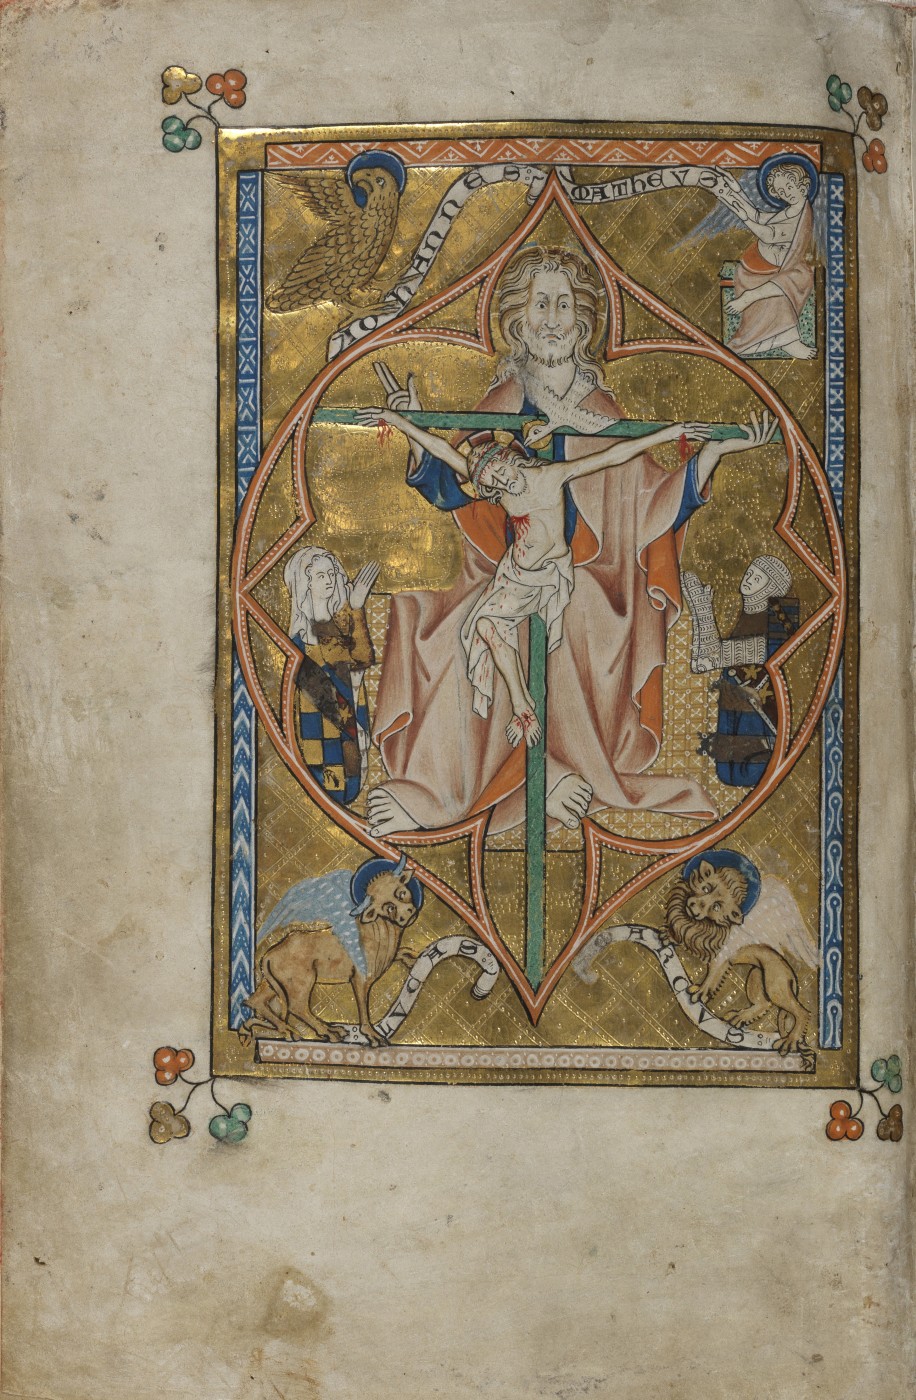 IOHANNES:
MATHEVS:
LVCAS:
MARCVS: